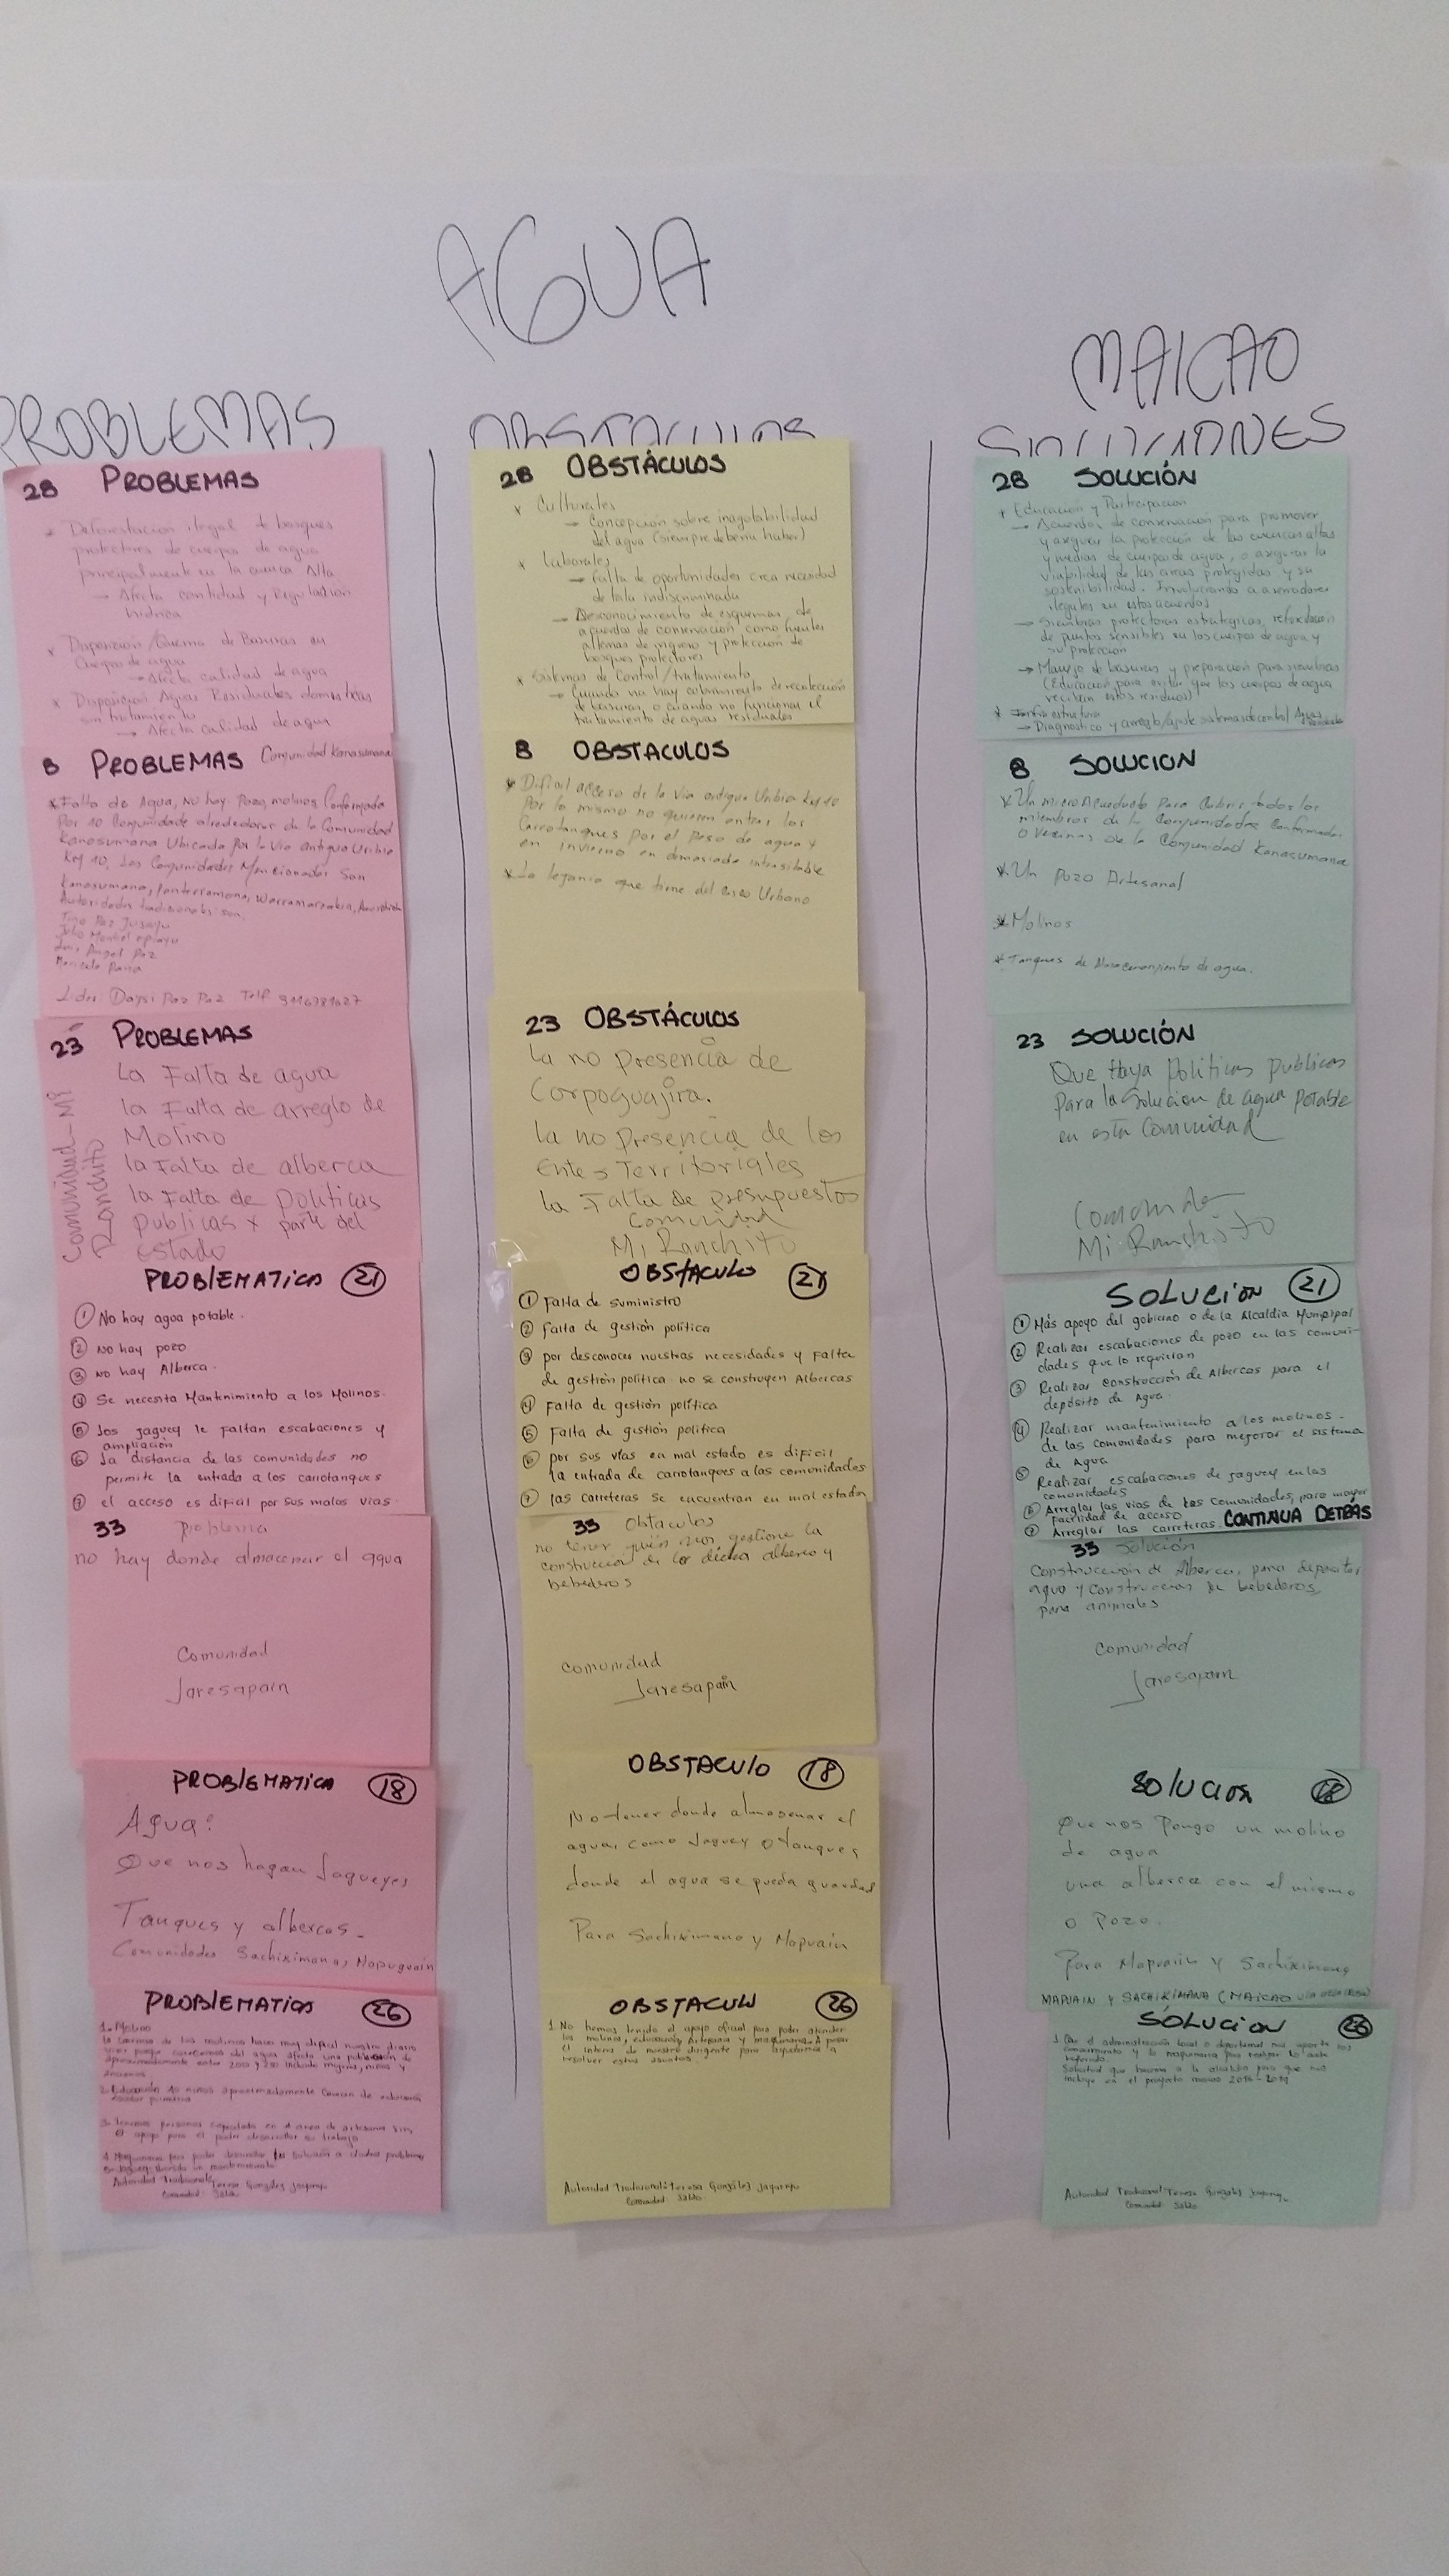 AGUA
MAICAO
PROBLEMAS
OBSTACULOS
SOLUCIONES
28 PROBLEMAS
* Deforestación ilegal + bosques
protectores de cuerpos de agua
principalmente en la cuenca Alta
→ Afecta cantidad y Regulación
hídrica
* Disposición/Quema de Basuras en
Cuerpos de agua
→ Afecta calidad de agua
* Disposición Aguas Residuales domésticas
sin tratamiento
→ Afecta calidad de agua
28 OBSTÁCULOS
* Culturales
→ Concepción sobre inagotabilidad
del agua (siempre debería haber)
* Laborales
→ Falta de oportunidades crea necesidad
de tala indiscriminada
→ Desconocimiento de esquemas de
acuerdos de conservación, como fuentes
alternas de ingreso y protección de
bosques protectores
* Sistemas de Control/tratamiento
→ Cuando no hay cubrimiento de recolección
de basuras, o cuando no funciona el
tratamiento de aguas residuales
28 SOLUCIÓN
* Educación y Participación
→ Acuerdos de conservación para promover
y asegurar la protección de las cuencas altas
y medias de cuerpos de agua, o asegurar la
viabilidad de las áreas protegidas y su
sostenibilidad. Involucrando a aserradores
ilegales en estos acuerdos
→ Siembras protectoras estratégicas,
de puntos sensibles en los cuerpos de agua y
su protección
→ Manejo de basuras y preparación para siembras
(Educación para evitar que los cuerpos de agua
reciban estos residuos)
* Infraestructura
→ Diagnóstico y arreglo/ajuste sistemas de control Aguas
8 PROBLEMAS Comunidad Kanasumana
* Falta de Agua, No hay Pozo, molinos Conformada
Por 10 Comunidade alrededores de la Comunidad
Kanasumana Ubicada Por la Vía antigua Uribia
Km 10, Las Comunidades Mencionadas Son
Kanasumana,
Autoridades tradicionales son:
Julio Montiel epiayu
Luis Angel Paz
Lider: Daysi Paz Paz Telf.
8 OBSTACULOS
* Dificil acceso de la Vía antigua Uribia Km 10
Por lo mismo no quieren entrar los
Carrotanques por el peso de agua y
en invierno en demasiado intransitable
* La lejanía que tiene del Casco Urbano
8 SOLUCION
* Un micro Acueducto Para Cubrir todos los
miembros de la Comunidades Conformadas
o Vecinas de la Comunidad Kanasumana
* Un pozo Artesanal
* Molinos
* Tanques de Almacenamiento de agua.
23 PROBLEMAS
Comunidad-Mi
Ranchito
La Falta de agua
la Falta de arreglo de
Molino
la Falta de alberca
la Falta de politicas
publicas x parte del
estado
23 OBSTÁCULOS
La no Presencia de
Corpoguajira.
La no Presencia de los
Entes Territoriales
la Falta de presupuestos
Comunidad
Mi Ranchito
23 SOLUCIÓN
Que Haya Politicas publicas
Para la Solucion de agua Potable
en esta Comunidad
Comunidad
Mi Ranchito
PROBLEMATICA 21
1 No hay agua potable.
2 No hay pozo
3 no hay Alberca.
4 Se necesita Mantenimiento a los Molinos.
5 los jaguey le faltan escabaciones y
ampliación
6 la distancia de las comunidades no
permite la entrada a los carrotanques
7 el acceso es dificil por sus malas vias.
OBSTACULO 21
1 Falta de suministro
2 Falta de gestión política
3 por desconocer nuestras necesidades y Falta
de gestión política no se construyen Albercas
4 Falta de gestión política
5 Falta de gestión política
6 por sus vías en mal estado es dificil
la entrada de carrotanques a las comunidades
7 las carreteras se encuentran en mal estado
SOLUCION 21
1 Más apoyo del gobierno o de la Alcaldia Municipal
2 Realizar escabaciones de pozo en las comuni-
dades que lo requieran
3 Realizar construcción de Albercas para el
depósito de Agua.
4 Realizar mantenimiento a los molinos.
de las comunidades para mejorar el sistema
de Agua
5 Realizar escabaciones de jaguey en las
comunidades
6 Arreglar las vías de las Comunidades, para mayor
facilidad de acceso
7 Arreglar las carreteras. CONTINUA DETRÁS
33 Problema
no hay donde almacenar el agua
Comunidad
Jaresapain
33 Obstaculos
no tener quien nos gestione la
construccion de los dicha alberca y
bebederos
Comunidad
Jaresapain
33 Solución
Construccion de Alberca, para depositar
agua y Construccion de bebederos,
para animales
Comunidad
Jaresapain
PROBLEMATICA 18
Agua:
Que nos hagan Jagueyes
Tanques y albercas.
Comunidades Sachikimana, Mapuguain
OBSTACULO 18
No tener donde almasenar el
agua, como Jaguey o tanques
donde el agua se pueda guardad
Para Sachikimana y Mapuain
SOLUCION 18
Que nos Ponga un molino
de agua
una alberca con el mismo
o Pozo.
Para Mapuain y Sachikimana
MAPUAIN Y SACHIKIMANA (MAICAO
PROBLEMATICA 26
1. Molino
2. Educación 40 niños aproximadamente carecen de educación
escolar primaria
3. Tenemos personas capacitada en el area de artesania sin
el apoyo para el poder desarrollar su trabajo
Autoridad Tradicional: Teresa González Jayariyu
Comunidad:
OBSTACULO 26
1. No hemos tenido el apoyo oficial para poder atender
los molinos, educación, Artesania y maquinarias a pesar
el interes de nuestro dirigente para ayudarnos a
resolver estos asuntos.
Autoridad Tradicional: Teresa González Jayariyu
Comunidad:
SOLUCION 26
1. Que el administración local o departamental nos aporte los
conocimiento y la maquinaria para realizar lo ante
referido.
Solicitud que hacemos a la alcaldia para que nos
incluya en el proyecto 2016-2019
Autoridad Tradicional Teresa González
Comunidad: